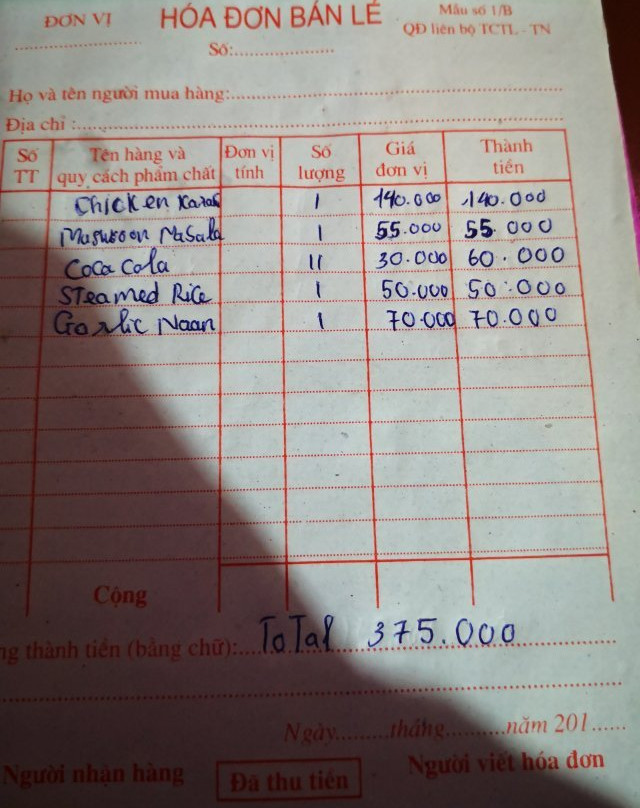 ĐƠN VỊ HÓA ĐƠN BÁN LẺ Mẫu số 1/B
QĐ liên bộ TCTL - TN
Số:
Họ và tên người mua hàng:
Địa chỉ :
Số TT Tên hàng và quy cách phẩm chất Đơn vị tính Số lượng Giá đơn vị Thành tiền
Chicken 1 140.000 140.000
Masala 1 55.000 55.000
Coca Cola 11 30.000 60.000
Steamed Rice 1 50.000 50.000
Garlic Naan 1 70.000 70.000
Cộng
ng thành tiền (bằng chữ): ToTal 375.000
Ngày tháng năm 201
Người nhận hàng Đã thu tiền Người viết hóa đơn